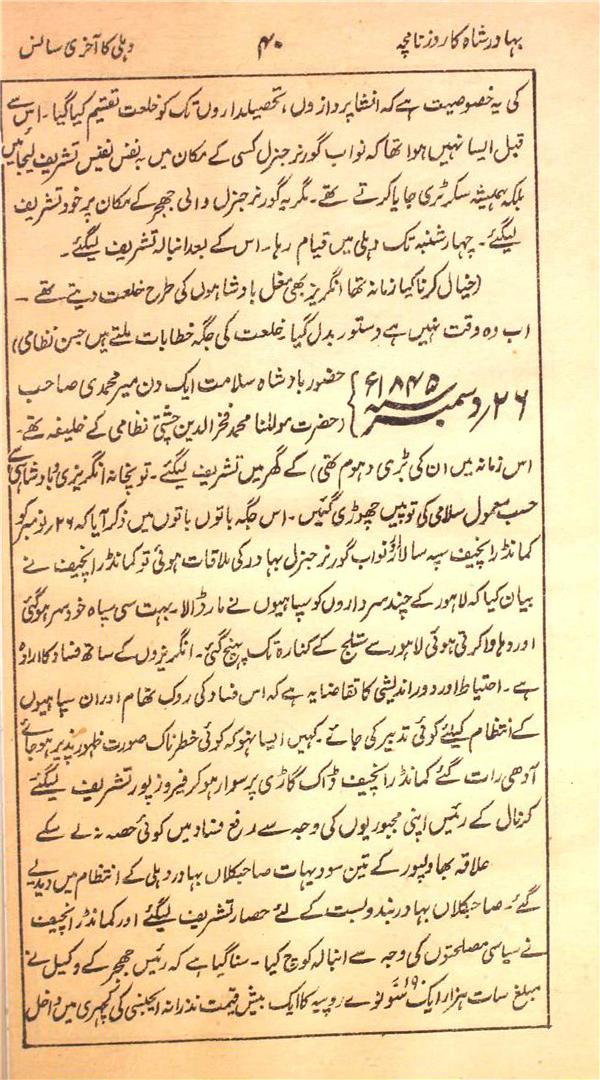 بہادر شاہ کا روزنامچہ ۴۰ دہلی کا آخری سانس
کی یہ خصوصیت ہے کہ انشا پردازوں، تحصیلداروں تک کو خلعت تقسیم کیا گیا۔ اس سے
قبل ایسا نہیں ہوا تھا کہ نواب گورنر جنرل کسی کے مکان میں بہ نفس نفیس تشریف لیجائیں
بلکہ ہمیشہ سکرٹری جایا کرتے تھے۔ مگر یہ گورنر جنرل والی جھجر کے مکان پر خود تشریف
لیگئے۔ چہار شنبہ تک دہلی میں قیام رہا۔ اس کے بعد انبالہ تشریف لیگئے۔
(خیال کرنا کیا زمانہ تھا انگریز بھی مغل بادشاہوں کی طرح خلعت دیتے تھے ۔
اب وہ وقت نہیں ہے دستور بدل گیا۔ خلعت کی جگہ خطابات ملتے ہیں حسن نظامی)
۲۶؍ دسمبر سنہ ۱۸۴۵ء } حضور بادشاہ سلامت ایک دن میر محمدی صاحب
(حضرت مولٰنا محمد فخر الدین چشتی نظامی کے خلیفہ تھے۔
اس زمانہ میں ان کی بڑی دہوم تھی) کے گھر میں تشریف لیگئے۔ توپخانہ انگریزی و بادشاہی سے
حسب معمول سلامی کی توپیں چھوڑی گئیں۔ اس جگہ باتوں باتوں میں ذکر آیا کہ ۲۶؍ نومبر کو
کمانڈر انچیف سپہ سالار و نواب گورنر جنرل بہادر کی ملاقات ہوئی تو کمانڈر انچیف نے
بیان کیا کہ لاہور کے چند سرداروں کو سپاہیوں نے مار ڈالا۔ بہت سی سپاہ خود سر ہوگئی
اور دہاوا کرتی ہوئی لاہور سے ستلج کے کنارہ تک پہنچ گئی۔ انگریزوں کے ساتھ فساد کا ارادہ
ہے۔ احتیاط اور دور اندیشی کا تقاضا یہ ہے کہ اس فساد کی روک تھام اور ان سپاہیوں
کے انتظام کیلئے کوئی تدبیر کی جائے۔ کہیں ایسا نہو کہ کوئی خطرناک صورت ظہور پذیر ہو جائے
آدھی رات گئے کمانڈر انچیف ڈاک گاڑی پر سوار ہو کر فیروز پور تشریف لیگئے
کرنال کے رئیس اپنی مجبوریوں کی وجہ سے رفع فساد میں کوئی حصہ نہ لے سکے
علاقہ بھاولپور کے تین سو دیہات صاحبکلاں بہادر دہلی کے انتظام میں دیدیے
گئے۔ صاحبکلاں بہادر بندوبست کے لئے حصار تشریف لیگئے اور کمانڈر انچیف
نے سیاسی مصلحتوں کی وجہ سے انبالہ کوچ کیا۔ سنا گیا ہے کہ رئیس جھجر کے وکیل نے
مبلغ سات ہزار ایک سو نوے روپیہ کا ایک بیش قیمت نذرانہ ایجنسی کی کچہری میں داخل